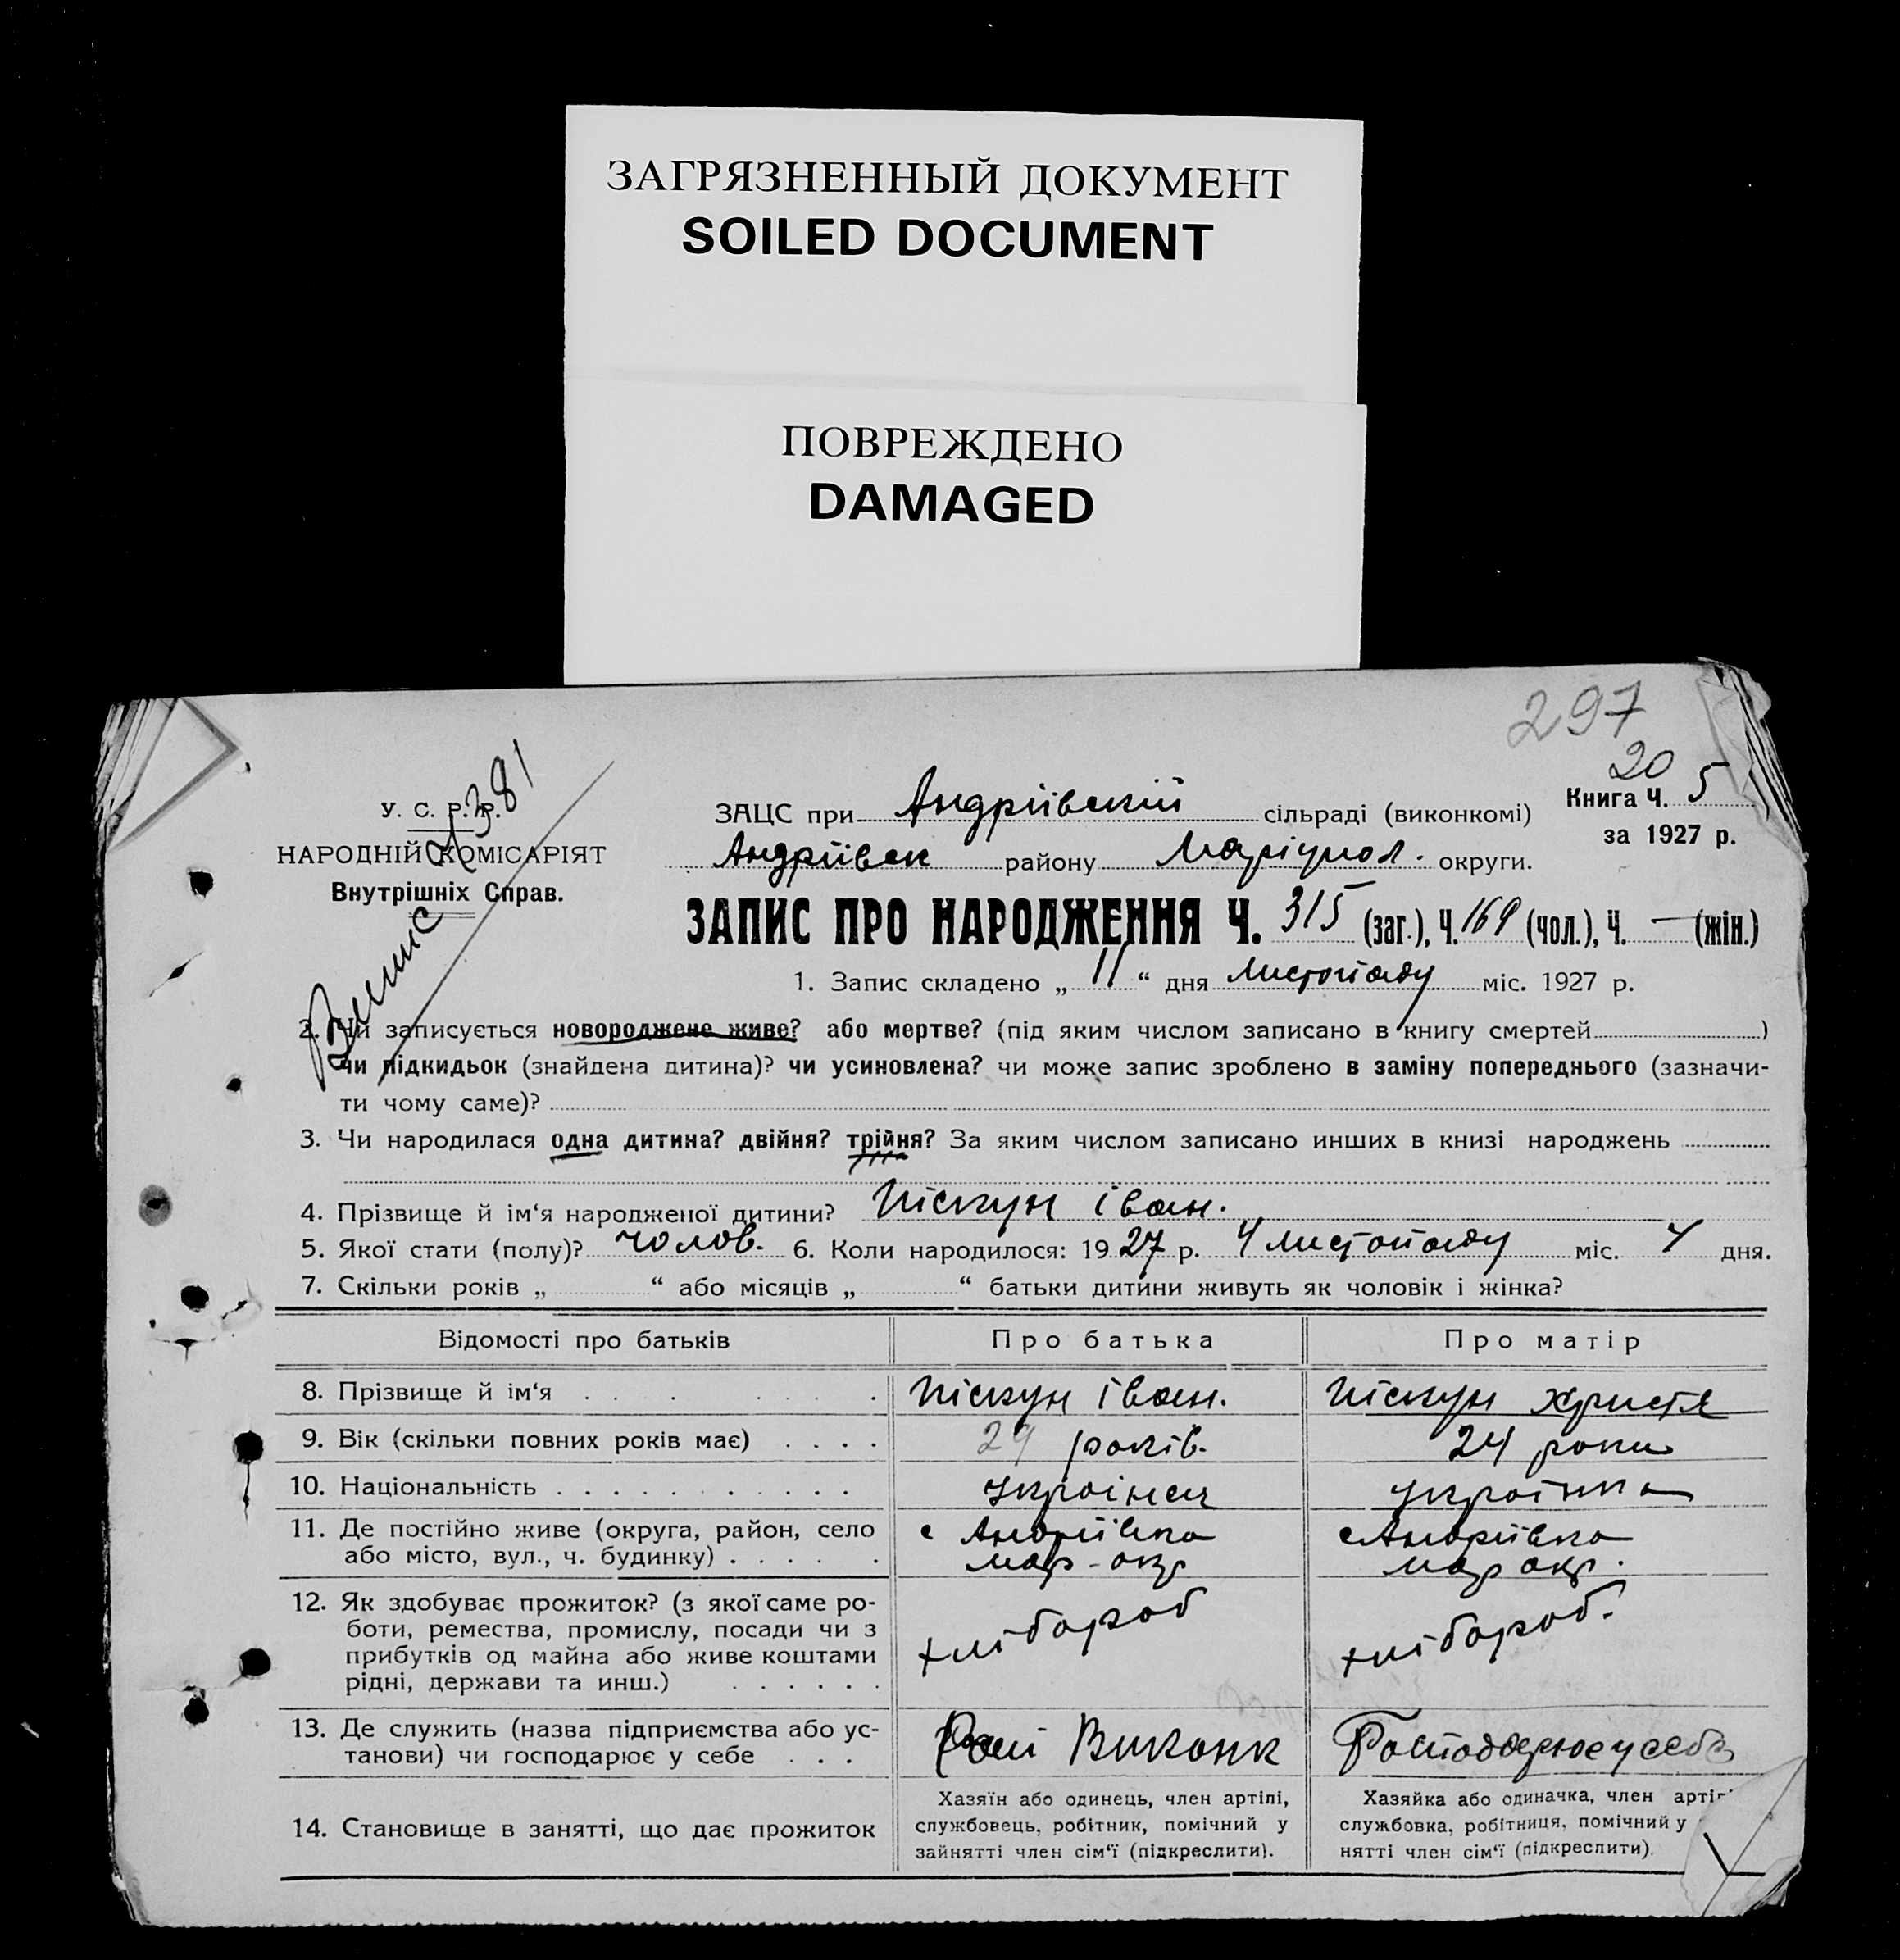 ЗАГРЯЗНЕННЫЙ ДОКУМЕНТ
SOILED DOCUMENT
ПОВРЕЖДЕНО
DAMAGED
297
20
Книга Ч. 5
за 1927 р.
У. С. Р. Р.
НАРОДНІЙ КОМІСАРІЯТ
Внутрішніх Справ.
ЗАЦС при Андріївскій сільраді (виконкомі)
Андріївск району Маріупол. округи.
ЗАПИС ПРО НАРОДЖЕННЯ Ч. 315 (заг.), Ч. 169 (чол.), Ч. — (жін.)
1. Запис складено „ 11 “ дня Листопаду міс. 1927 р.
2. Чи записується новороджене живе? або мертве? (під яким числом записано в книгу смертей )
чи підкидьок (знайдена дитина)? чи усиновлена? чи може запис зроблено в заміну попереднього (зазначи-
ти чому саме)?
3. Чи народилася одна дитина? двійня? трійня? За яким числом записано инших в книзі народжень
4. Прізвище й ім‘я народженої дитини? Піскун Іван.
5. Якої стати (полу)? чолов. 6. Коли народилося: 1927 р. 4 листопаду міс. 4 дня.
7. Скільки років „ “ або місяців „ “ батьки дитини живуть як чоловік і жінка?
Відомості про батьків Про батька Про матір
8. Прізвище й ім‘я Піскун Іван. Піскун Христя
9. Вік (скільки повних років має) 29 років. 24 роки
10. Національність Українец Українка
11. Де постійно живе (округа, район, село с Андріївка с Андріївка
або місто, вул., ч. будинку) мар-окр мар окр.
12. Як здобуває прожиток? (з якої саме ро-
боти, ремества, промислу, посади чи з хлібороб хлібороб.
прибутків од майна або живе коштами
рідні, держави та инш.)
13. Де служить (назва підприємства або ус- Виконк Господарює у себе
танови) чи господарює у себе
14. Становище в занятті, що дає прожиток
Хазяїн або одинець, член артілі,
службовець, робітник, помічний у
зайнятті член сім‘ї (підкреслити).
Хазяйка або одиначка, член
службовка, робітниця, помічний у
нятті член сім‘ї (підкреслити).